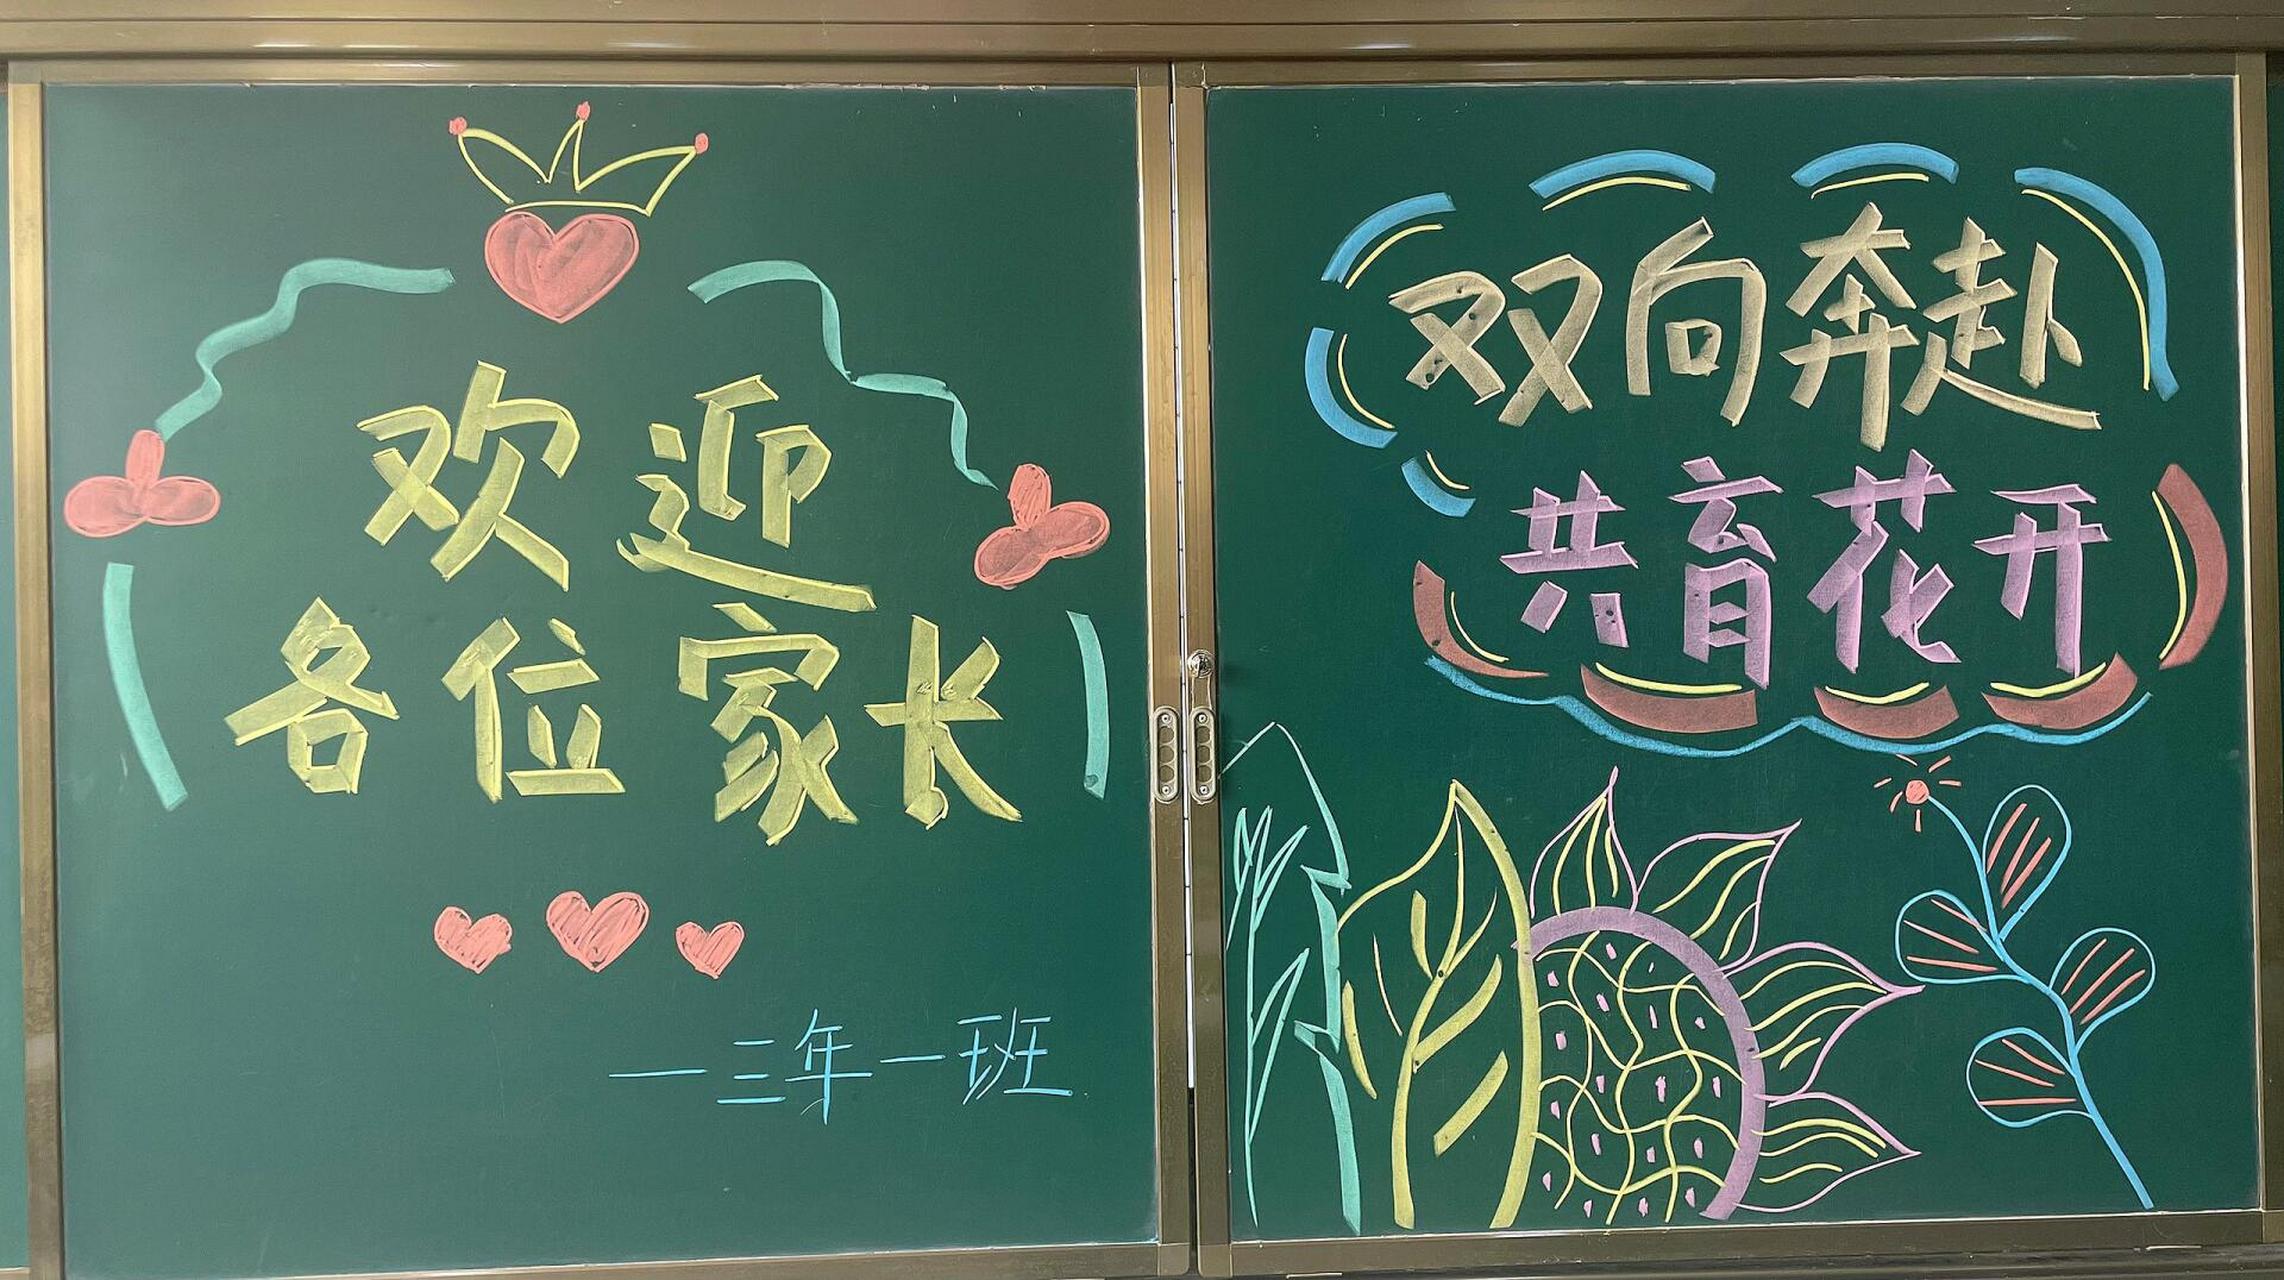 欢迎
各位家长
—三年一班
双向奔赴
共育花开